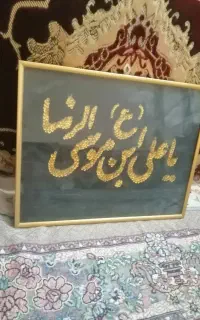 یا علی ابن موسی الرضا (ع)